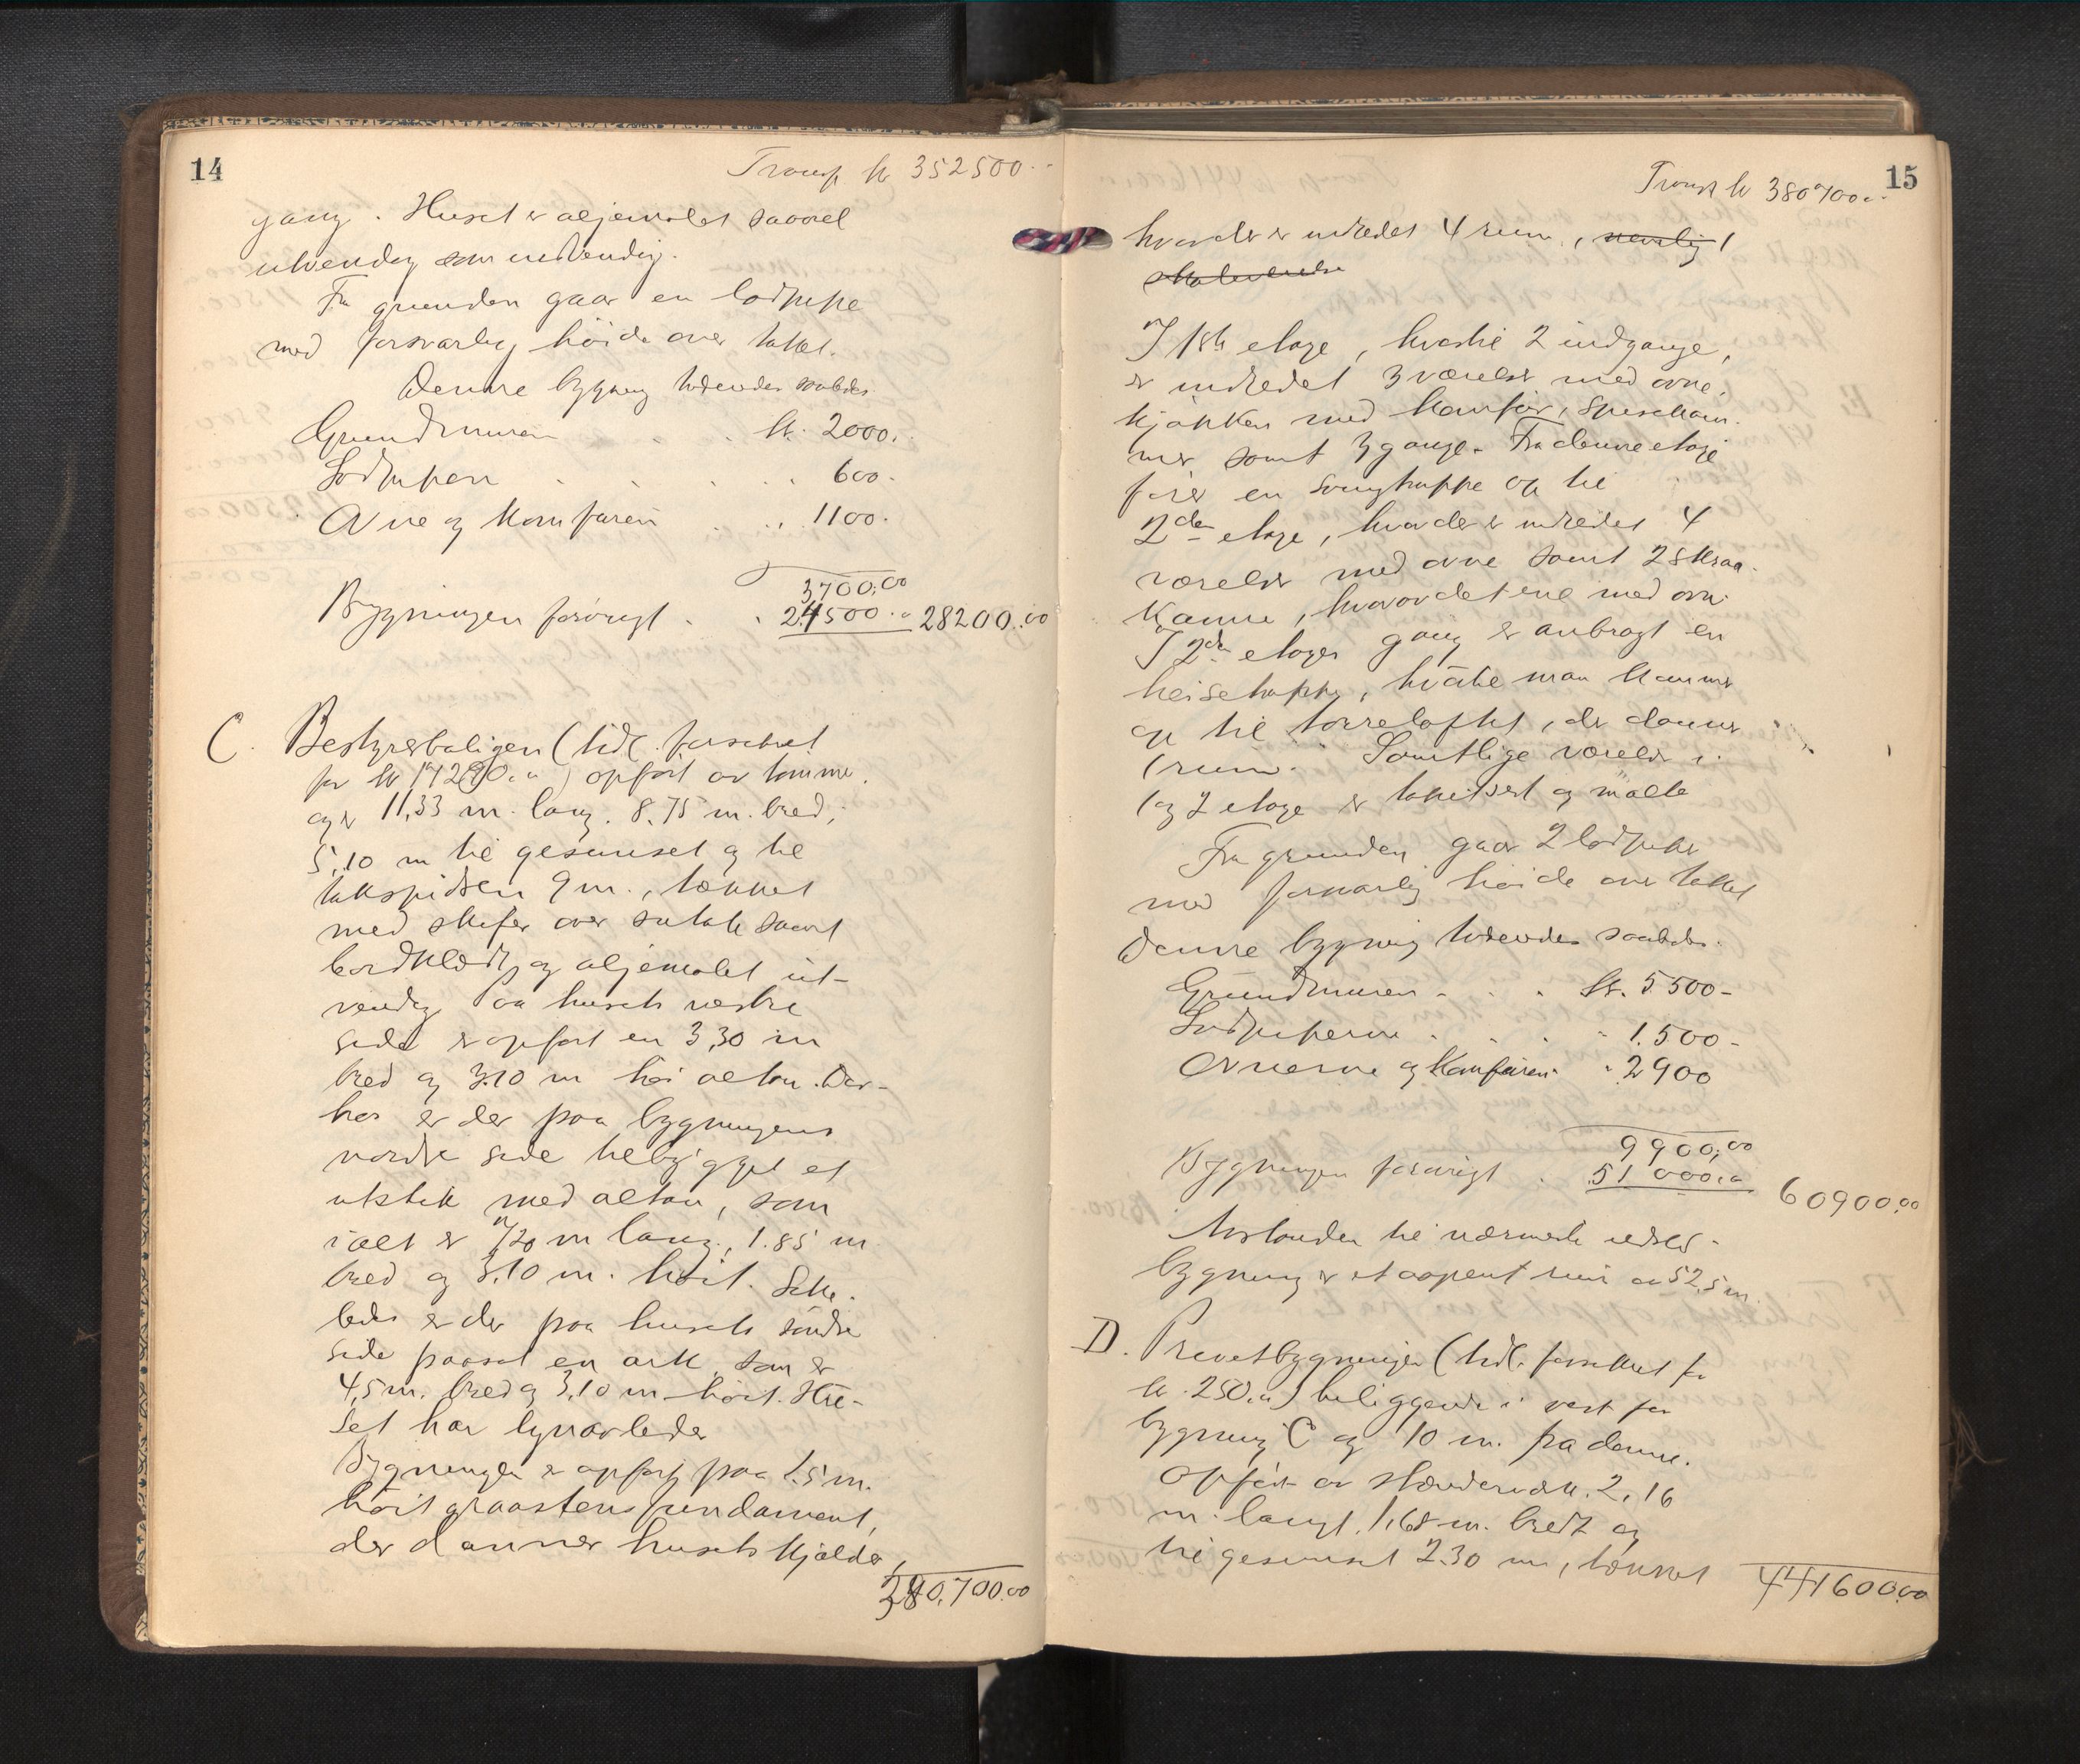 14
Transp kr 352500.-
gang. Huset er oljemalet saavel
utvendig som indvendig.
Fra grunden gaar en lodpipe
med forsvarlig höide over taket.
Denne bygning vurderes saaledes
Grundmuren . . kr. 2000.
Lodpipen . . . . . 600.
Ovne og komfuren . . „ 1100.
3700,00
Bygningen forövrigt . . 24500.00 28200.00
C. Bestyrerboligen (tidl. forsikret
for kr 17290.00) opfört av tömmer
og er 11,33 m. lang. 8.75 m. bred,
5,10 m til gesimset og til
takspidsen 9 m., tækket
med skifer over sutak samt
bordklædt og oljemalet ut-
vendig. Paa husets vestre
side er opfört en 3,30 m
bred og 3.10 m höi altan. Der-
hos er der paa bygningens
nordre side tilbygget et
utstik med altan, som
ialt er 7,20 m lang, 1.85 m
bred og 3,10 m. höit. Like-
ledes er der paa husets söndre
side paasat en ark, som er
4,5 m. bred og 3,10 m höit. Hu-
set har lynavleder
Bygningen er opfört paa 2.5 m.
höit graastensfundament,
der danner husets kjelder,
380,700.00
15
Transp kr 380700.-
hvor der er indredet 4 rum, nemlig 1
I 1ste etage, hvortil 2 indgange,
er indredet 3 værelser med ovne,
kjökken med komfur, spisekam-
mer samt 3 gange. Fra denne etage
förer en svingtrappe op til
2den etage, hvor der er indredet 4
værelser med ovne samt 2 skraa-
kamre, hvorav det ene med ovn.
I 2den etages gang er anbragt en
heisetrappe, hvortil man kommer
op til törreloftet, der danner
1 rum. Samtlige værelser i
1 og 2 etage er tapetsert og malte
Fra grunden gaar 2 lodpiper
med forsvarlig höide over taket
Denne bygning vurderes saaledes.
Grundmuren . . . kr. 5500-
Lodpiperne . . . „ 1.500-
Ovnerne og Komfuren „ 2900
9900,00
Bygningen forövrigt . 51000.00 60900.00
Avstanden til nærmeste uthus-
bygning er et aapent rum av 52,5 m.
D. Privetbygningen (tidl. forsikret for
kr. 250.00) beliggende i vest for
bygning C og 10 m. fra denne.
Opfört av stenderverk. 2,16
m. langt, 1,68 m. bredt og
til gesimset 2.30 m, tækket
441600.00